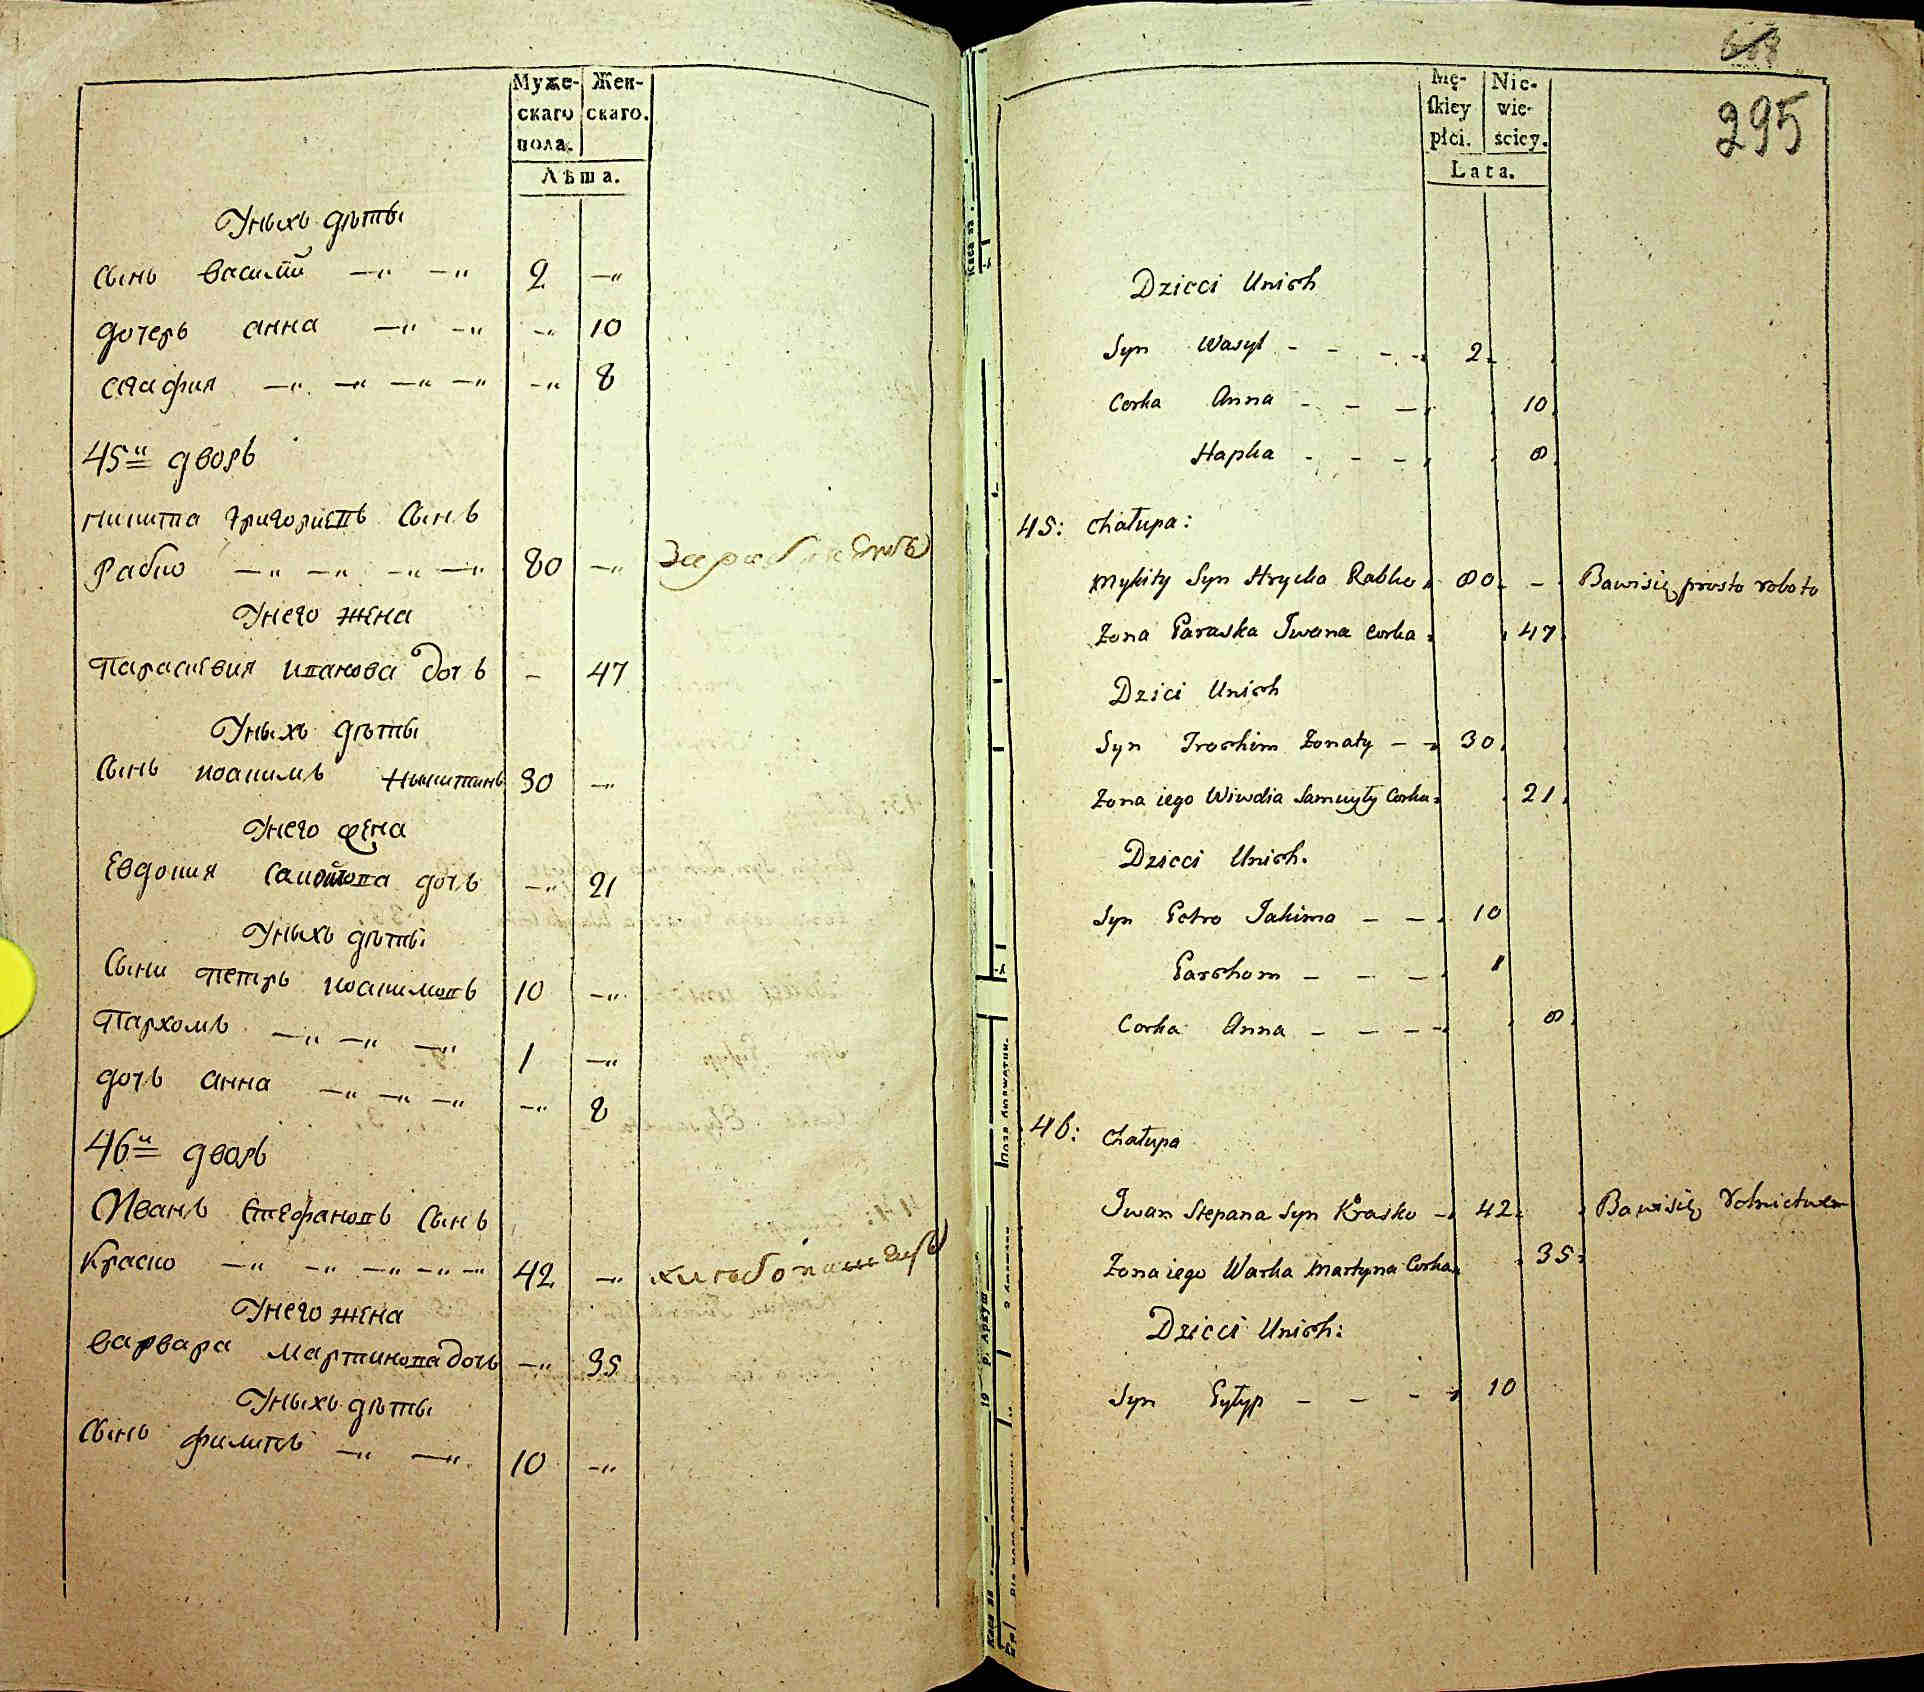 Муже-
скаго
пола.
Жен-
скаго.
Лѣта.
Уныхъ дѣти
Сынъ василий —„ —„ 2 —„
дочеръ анна —„ —„ —„ 10
агафия —„ —„ —„ —„ —„ 8
45й дворъ
никита григориевъ Сынъ
Рабко —„ —„ —„ —„ 80 —„
Унего жена
Параскевия иванова дочъ — 47
Уныхъ дѣти
Сынъ иоакимъ никитинъ 30 —„
Унего жена
Евдокия самойлова дочъ —„ 21
Уныхъ дѣти
Сыни петръ иоакимовъ 10 —„
Пархомъ —„ —„ —„ 1 —„
дочъ анна —„ —„ —„ —„ 8
46й дворъ
Иванъ Стефановъ Сынъ
Краско —„ —„ —„ —„ —„ 42 —„ хлебопашецъ
Унего жена
варвара мартинова дочъ —„ 35
Уныхъ дѣти
Сынъ филипъ —„ —„ 10 —„
295
Mę-
ſkiey
płci.
Nie-
wie-
ściey.
Lata.
Dzieci Unich
Syn Wasyl - - - - 2
Corka Anna - - — 10
Hapka - - - 8
45: Chałupa:
Mykity Syn Hrycka Rabko 80 - Bawisię prosto roboto
Żona Paraska Iwana Corka 47
Dzici Unich
Syn Irochim Żonaty - - 30
Żona iego Wiwdia Samuyły Corka 21
Dzieci Unich.
Syn Petro Jakima — — 10
Parchom — — — 1
Corka Anna — — — 8
46: Chałupa
Iwan Stepana Syn Krasko - 42 Bawisię Rolnictwem
Żona iego Warka Martyna Corka 35
Dzieci Unich:
Syn Pyłyp — — - - 10